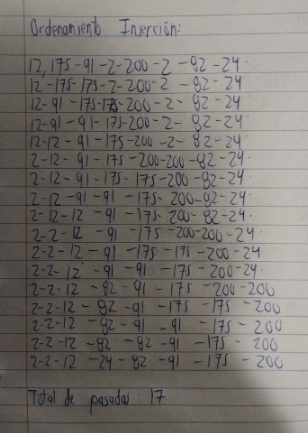 Ordenamiento Inserción:
12, 175-91-2-200-2-82-24.
12-175-175-2-200-2-82-24
12-91-175-175-200-2-82-24
12-91-91-175-200-2-82-24.
12-12-91-175-200-2-82-24.
2-12-91-175-200-200-82-24.
2-12-91-175-175-200-82-24
2-12-91-91-175-200-82-24.
2-12-12-91-175-200-82-24.
2-2-12-91-175-200-200-24.
2-2-12-91-175-175-200-24
2-2-12-91-91-175-200-24.
2-2-12-82-91-175-200-200
2-2-12-82-91-175-175-200
2-2-12-82-91-91-175-200
2-2-12-82-82-91-175-200
2-2-12-24-82-91-175-200
Total de pasadas: 17